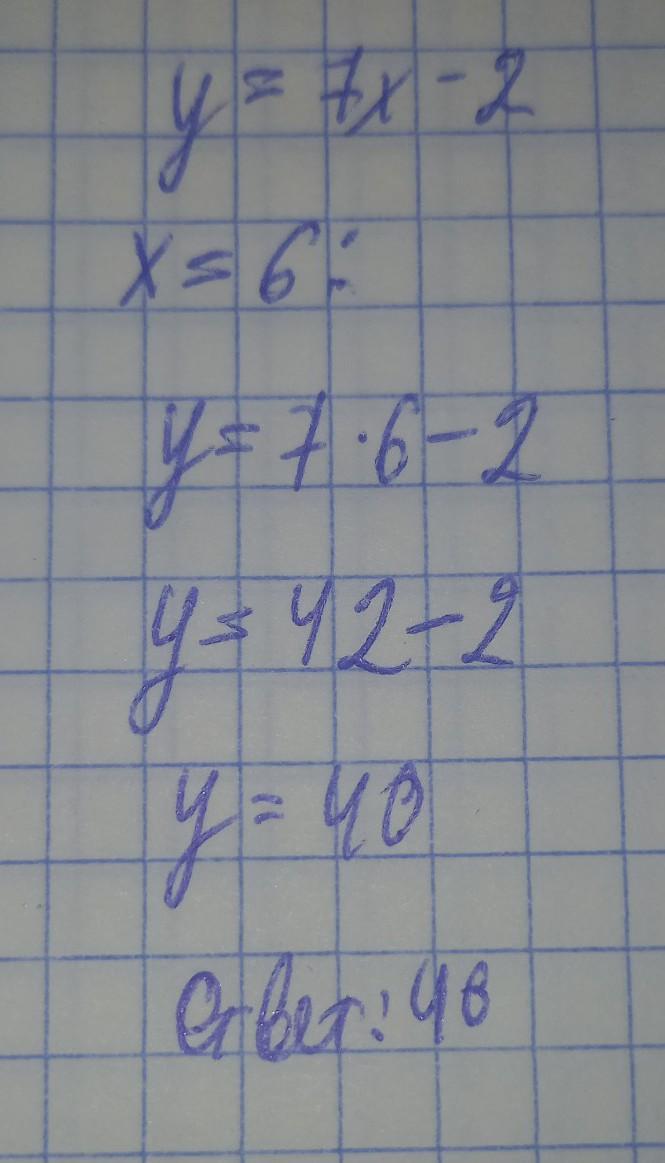 y = 7x - 2
x = 6:
y = 7 · 6 - 2
y = 42 - 2
y = 40
Ответ: 40